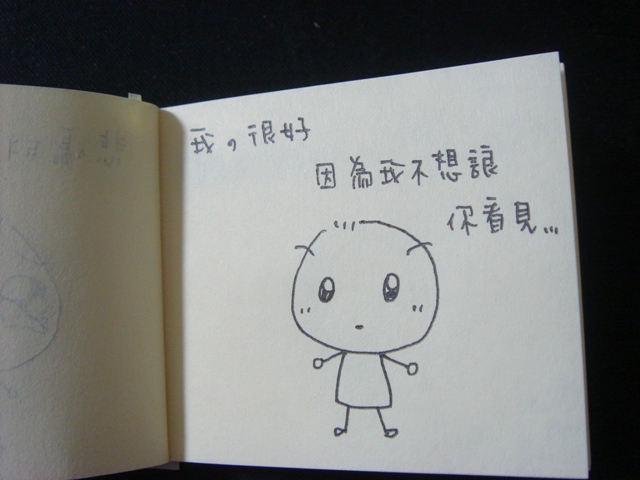 我，很好
因為我不想讓
你看見...